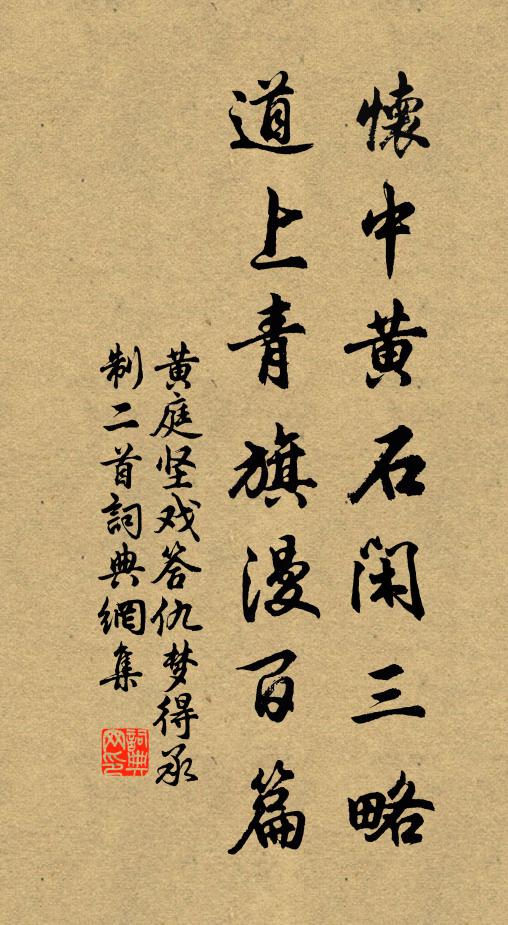 懷中黄石閑三略
道上青旗漫百篇
黄庭坚戏答仇梦得承
制二首詞典網集
詞典
网